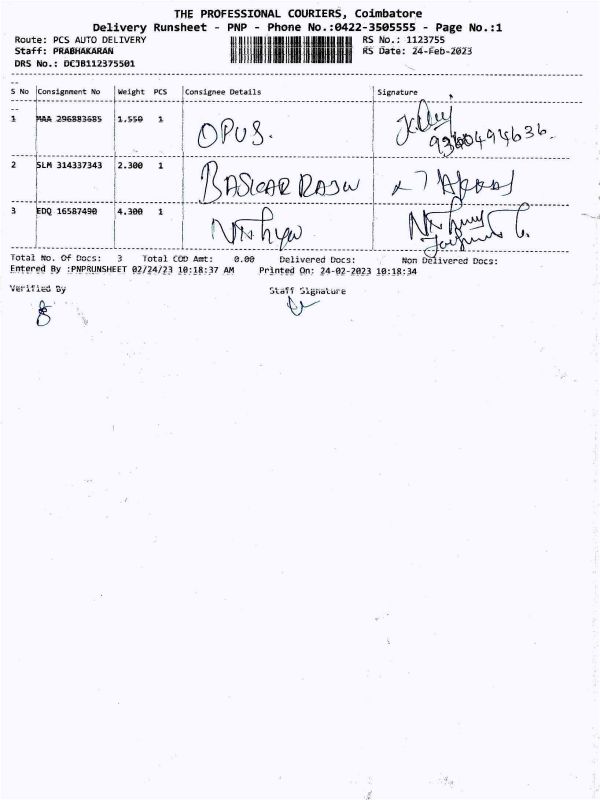 THE PROFESSIONAL COURIERS, Coimbatore
Delivery Runsheet - PNP - Phone No.:0422-3505555 - Page No.:1
Route: PCS AUTO DELIVERY RS No.: 1123755
Staff: PRABHAKARAN RS Date: 24-Feb-2023
DRS No.: DCJB112375501
S No Consignment No Weight PCS Consignee Details Signature
1 MAA 296883685 1.550 1 OPUS.
2 SLM 314337343 2.300 1 BASKAR RAJU
3 EDQ 16587490 4.300 1 Nithya
Total No. Of Docs: 3 Total COD Amt: 0.00 Delivered Docs: Non Delivered Docs:
Entered By :PNPRUNSHEET 02/24/23 10:18:37 AM Printed On: 24-02-2023 10:18:34
Verified By Staff Signature